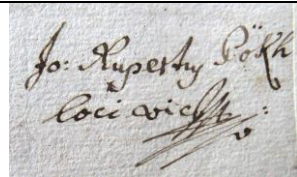 Jo: Rupertus Pökh
loci vic